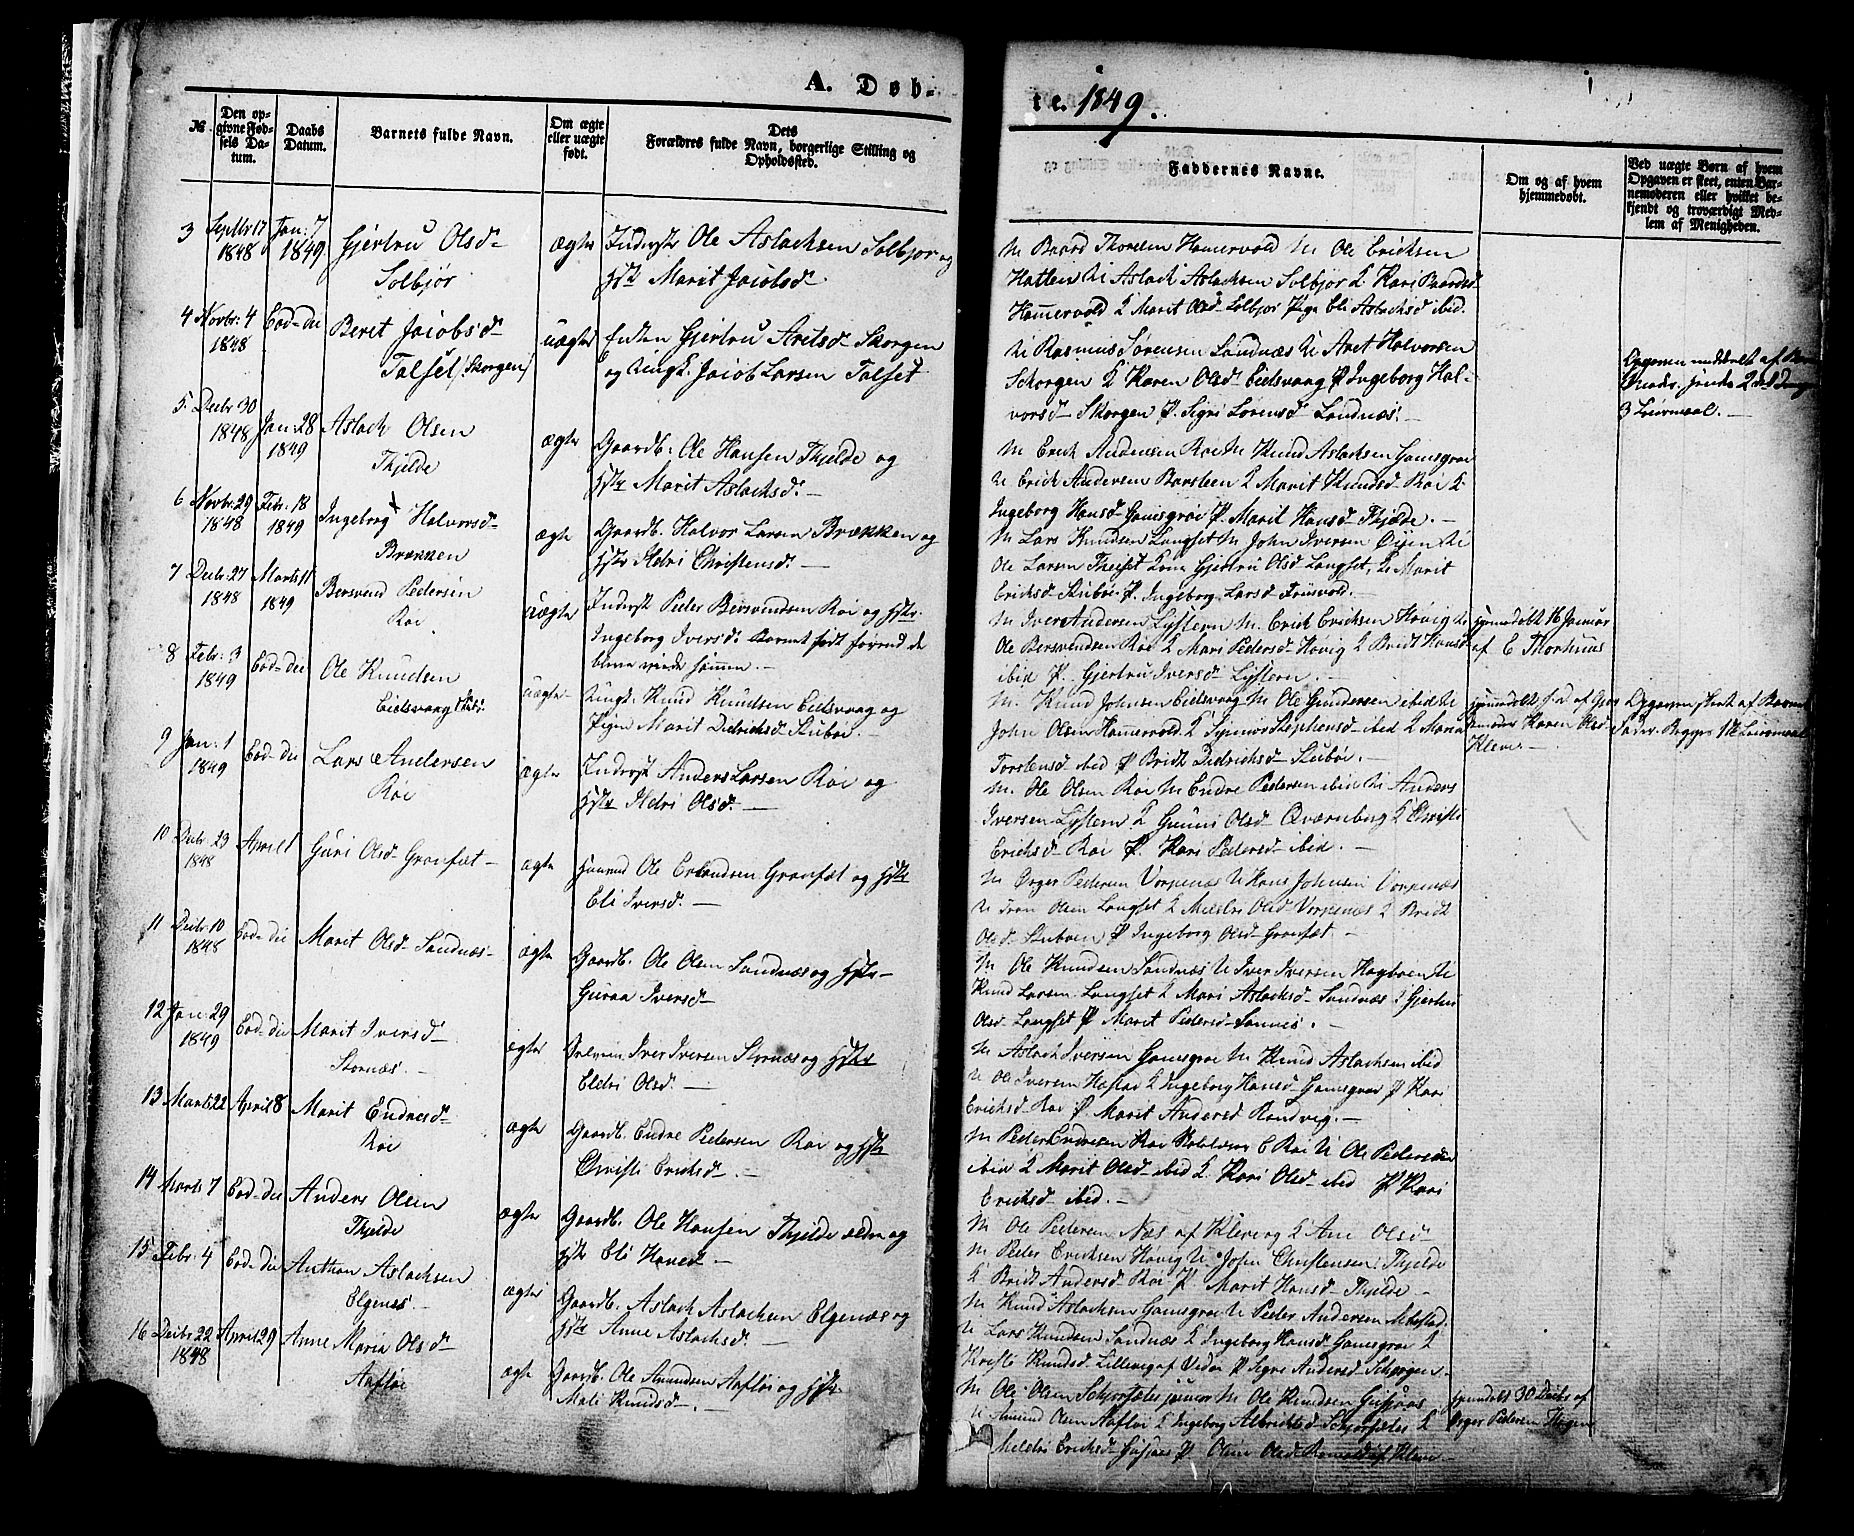 A. Døb-
te. 1849.
№
Den op-
givne Fød-
sels Da-
tum.
Daabs
Datum.
Barnets fulde Navn.
Om ægte
eller uægte
født.
Dets
Forældres fulde Navn, borgerlige Stilling og
Opholdssted.
Faddernes Navne.
Om og af hvem
hjemmedøbt.
Ved uægte Børn af hvem
Opgaven er skeet, enten Bar-
nemoderen eller hvilket be-
kjendt og troværdigt Med-
lem af Menigheden.
3 Septbr 17 1848 Jan: 7 1849 Gjertru Olsd- Solbjør ægte Inderst Ole Aslachsen Solbjør og
Hstr Marit Jacobsd.
M Baard Thoresen Hamervold M Ole Ericksen
Hatlen U Aslach Aslachsen Solbjør K Kari Baardsd
Hamervold K Marit Olsd- Solbjør Pige Eli Aslachsd ibid.
4 Novbr: 4 1848 Eod- die Beret Jacobsd- Talset /Skorgen/ uægte Enken Gjertru Aretsd- Skorgen
og Ungk. Jacob Larsen Talset
U Rasmus Sørensen Sandnæs U Aret Halvorsen
Skorgen K Karen Olsd- Eidsvaag P Ingeborg Hal-
vorsd- Skorgen P. Sigri Sørensd- Sandnæs.
Opgaven meddelt af
3 Leiermaal. -
5 Decbr 30 1848 Jan: 28 1849 Aslach Olsen Thjelde ægte Gaardb: Ole Hansen Thjelde og
Hstr Marit Aslachsd. -
M Erick Andersen Roe M Knud Aslachsen Gamsgroe
U Erick Andersen Barsteen K Marit Knudsd- Roe K
Ingeborg Hansd- Gamsgroe P Marit Hansd- Thjelde. -
6 Novbr: 29 1848 Febr: 18 1849 Ingeborg Halvorsd- Brækken ægte Gaardb. Halvor Larsen Brækken og
Hstr Ildri Christensd. -
M Lars Knudsen Langset M John Iversen Øien U
Ole Larsen K Gjertru Olsd Langset, K Marit
Ericksd Stubøe P. Ingeborg Larsd
7 Decbr: 27 1848 Marts 11 1849 Bersvend Pedersen Roe uægte Inderst Peder Bersvendsen Roe og Hstr.
Ingeborg Iversd: Barnet født førend de
bleve viede sammen. -
M Iver Andersen Lystern M. Erick Ericksen Høvig U
Ole Bersvendsen Roe K Mari Pedersd- Høvig K Bridt Hansd
ibid P. Gjertru Iversd- Lystern. -
hjemmedøbt 16 Januar
af E Thorhuus
8 Febr: 3 1849 Eod- die Ole Knudsen Eidsvaag uægte Ungk: Knud Knudsen Eidsvaag og
Pigen Marit Didrichsd- Stubøe. -
M. Knud Johnsen Eidsvaag M Ole Gundersen ibid U
John Olsen Hammervold K Synnøv Stephensd- ibid K Maria
Torstensd- ibid P Bridt Didrichsd- Stubøe. -
hjemmedøbt af
Karen Olsd-
Kleve. -
Opgaven skeet af Barnets
Fader. Begges 1ste Leiermaal
9 Jan: 1 1849 Eod- die Lars Andersen Roe ægte Inderst Anders Larsen Roe og
Hstr Ildri Olsd. -
M. Ole Olsen Roe M Endre Pedersen ibid U Anders
Iversen Lystern K Gunni Olsd- Qværnberg K Christi
Ericksd- Roe P. Kari Pedersd- ibid. -
10 Decbr 23 1848 April 1 Guri Olsd- Gronfæt- ægte Huusmd Ole Erlandsen Gronfæt og Hstr
Eli Iversd. -
M Ørger Pedersen Vorpenæs U Hans Johnsen Vorpenæs
U Iver Olsen Langset K Meldri Olsd- Vorpenæs K Bridt
Olsd- Stuboen P Ingeborg Olsd- Gronfæt. -
11 Decbr: 10 1848 Eod- die Marit Olsd- Sandnæs- ægte Gaardb. Ole Olsen Sandnæs og Hstr-
Guraa Iversd-
M Ole Knudsen Sandnæs U Iver Iversen Hagboen U
Knud Larsen Langset K Mari Aslachsd- Sandnæs K Gjertru
Olsd- Langset P Marit Pedersd- Sannes. -
12 Jan: 29 1849 Eod- die Marit Iversd- Stornæs. - ægte Iver Iversen Stornæs og Hstr
Eldri Olsd. -
M Aslach Iversen Gamsgroe M Knud Aslachsen ibid
U Ole Iversen Hostad K Ingeborg Hansd- Gamsgroe P Kari
Ericksd- Roe P. Marit Andersd Randvig. -
13 Marts 22 April 8 Marit Endresd- Roe ægte Gaardb. Endre Pedersen Roe og Hstr
Christi Ericksd. -
M Peder Endresen Roe E Roe U Ole Pedersen
ibid K Marit Olsd- ibid K. Kari Olsd- ibid P Kari
Ericksd- ibid. -
14 Marts 7 Eod- die Anders Olsen Thjelde ægte Gaardb. Ole Hansen Thjelde ældre og
Hstr Eli -
M Ole Pedersen Næs af Klevig K Ane Olsd-
M Peder Ericksen Høvig U John Christensen Thjelde
K Bridt Andersd- Roe P Marit Hansd- Thjelde -
15 Febr: 4 Eod- die Anthon Aslachsen Elgenæs. - ægte Gaardb. Aslach Aslachsen Elgenæs og
Hstr Anne Aslachsd. -
M Knud Aslachsen Gamsgroe U Peder Andersen
U Lars Knudsen Sandnæs K Ingeborg Hansd- Gamsgroe K
Kristi Knudsd. af P Sigri Andersd- Schorgen -
16 Decbr: 22 1848 April 29 Anne Maria Olsd- Aafløe ægte Gaardb. Ole Amundsen Aafløe og Hstr.
Mali Knudsd. -
M Ole Olsen junior M Ole Knudsen Gusjaas
U Amund Olsen Aafløe K Ingeborg Albrichtsd K
Meldri Ericksd- Gusjaas P Oline Olsd af Kleve -
hjemmedøbt 30 Decbr af
Ørger Pedersen